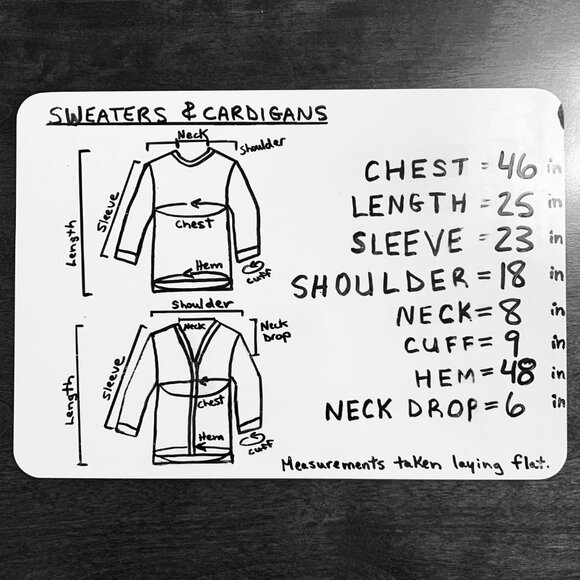 SWEATERS & CARDIGANS
Neck
Shoulder
Sleeve
Length
Chest
Hem
cuff
Shoulder
Neck
Neck Drop
Sleeve
Length
Chest
Hem
cuff
CHEST = 46 in
LENGTH = 25 in
SLEEVE = 23 in
SHOULDER = 18 in
NECK = 8 in
CUFF = 9 in
HEM = 48 in
NECK DROP = 6 in
Measurements taken laying flat.